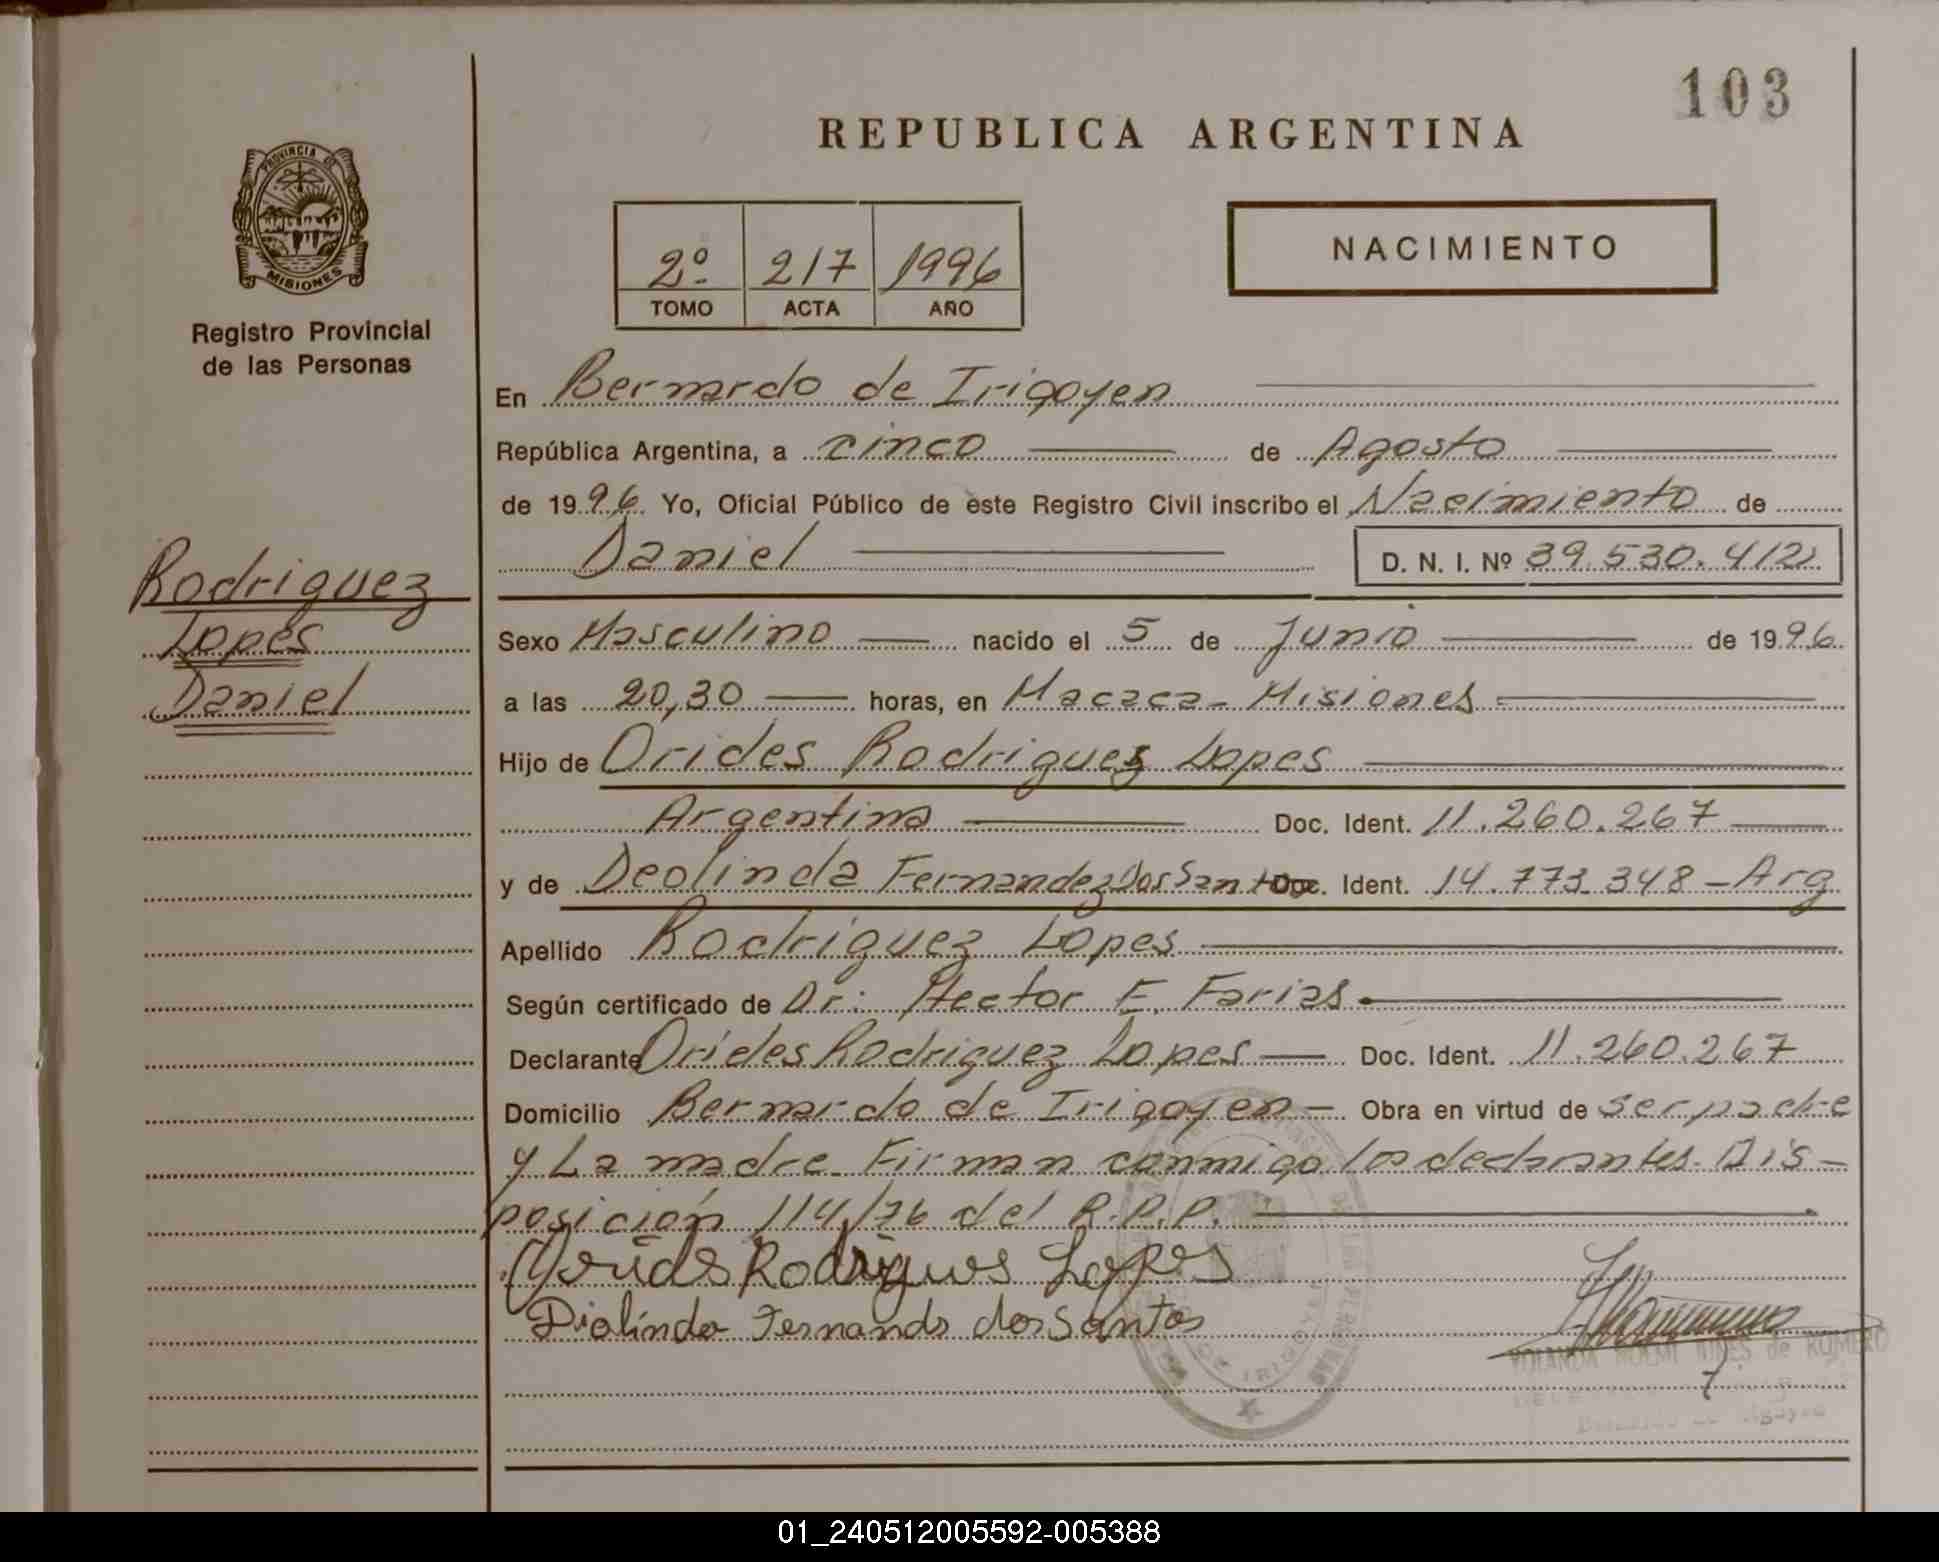 103
REPUBLICA ARGENTINA
PROVINCIA DE
MISIONES
Registro Provincial
de las Personas
2º 217 1996
TOMO ACTA AÑO
NACIMIENTO
En Bernardo de Irigoyen
República Argentina, a cinco de Agosto
de 1996. Yo, Oficial Público de este Registro Civil inscribo el Nacimiento de
Daniel D. N. I. Nº 39.530.412
Rodriguez
Lopes
Daniel
Sexo Masculino nacido el 5 de Junio de 1996.
a las 20,30 horas, en Macaca - Misiones
Hijo de Orides Rodriguez Lopes
Argentina Doc. Ident. 11.260.267
y de Deolinda Fernandez Dos Santos Doc. Ident. 14.773.348 - Arg
Apellido Rodriguez Lopes
Según certificado de Dr: Hector E. Farias.
Declarante Orides Rodriguez Lopes Doc. Ident. 11.260.267
Domicilio Bernardo de Irigoyen - Obra en virtud de ser padre
y La madre. Firman conmigo los declarantes. Dis-
posición 114/76 del R.P.P.
Rodrigues Lopes
Diolinda Fernands dos Santos
YOLANDA NOEMI de ROMERO
01_240512005592-005388